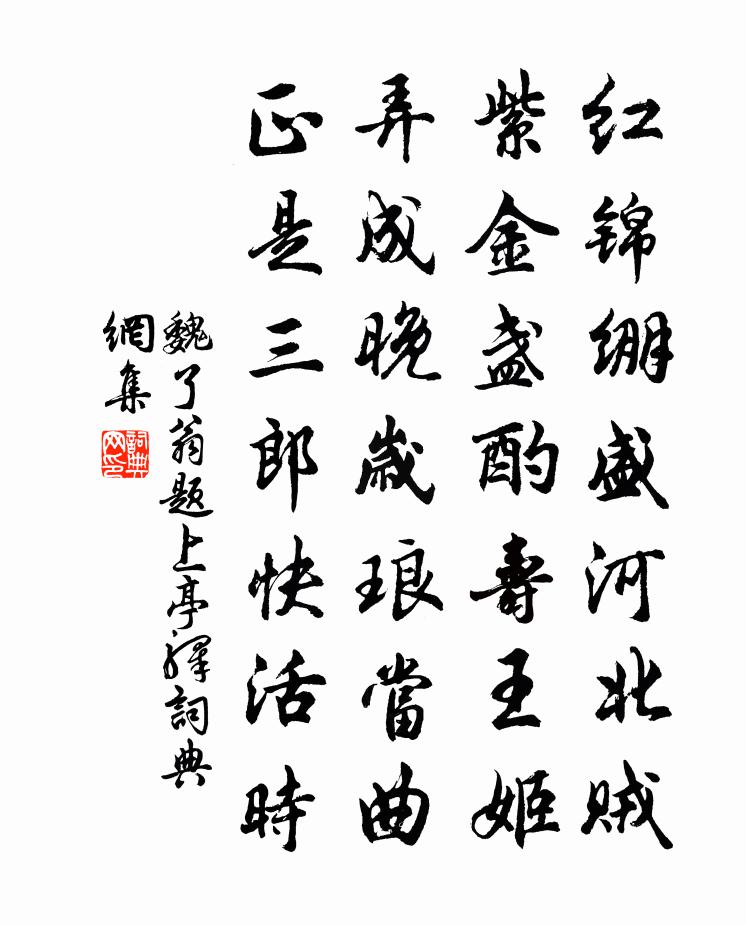 红锦绷盛河北贼
紫金盏酌寿王姬
弄成晚岁琅当曲
正是三郎快活时
魏了翁题上亭驿词典
網集
詞典
网印